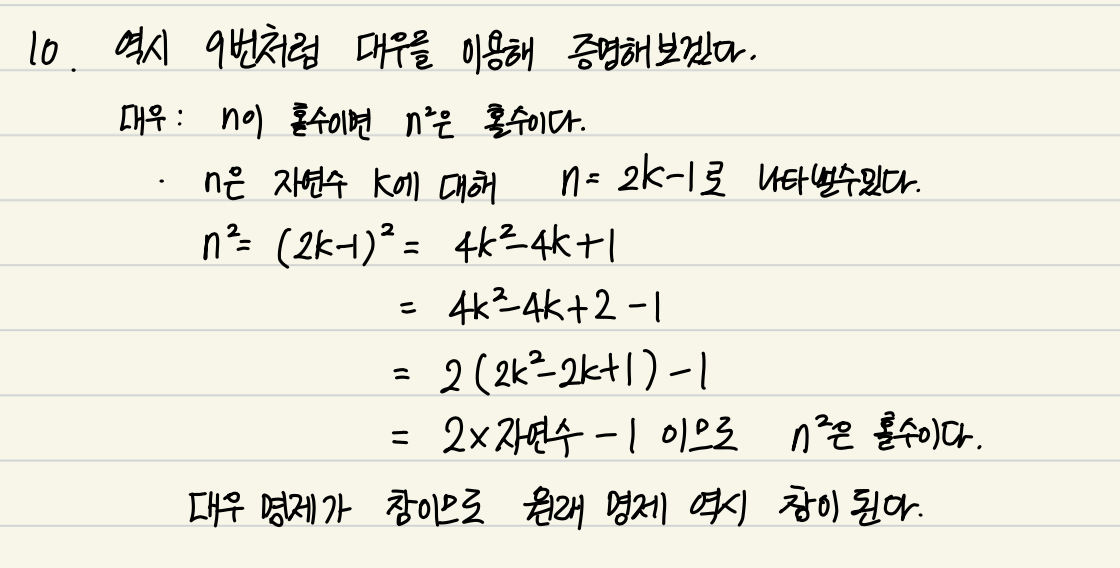 10. 역시 9번처럼 대우를 이용해 증명해보겠다.
대우: n이 홀수이면 n²은 홀수이다.
· n은 자연수 k에 대해 n = 2k-1로 나타낼수있다.
n² = (2k-1)² = 4k²-4k+1
= 4k²-4k+2-1
= 2(2k²-2k+1)-1
= 2×자연수-1 이므로 n²은 홀수이다.
대우 명제가 참이므로 원래 명제 역시 참이 된다.